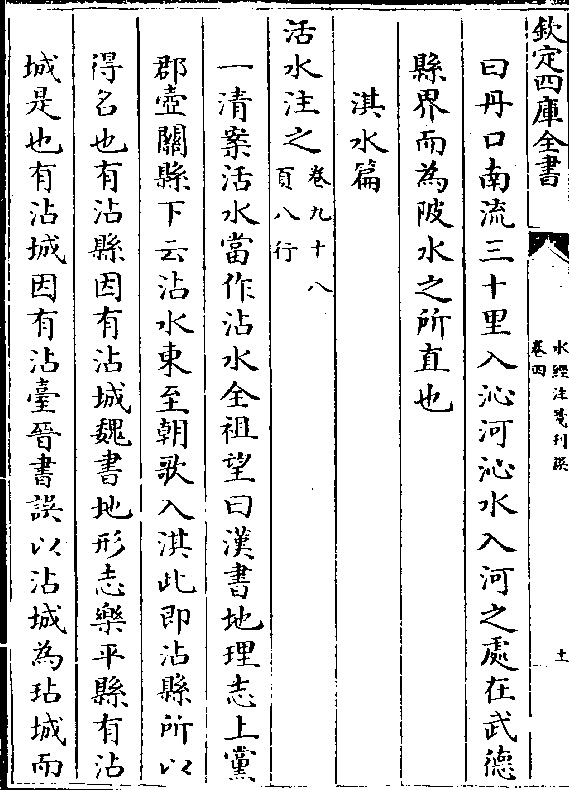 欽定四庫全書
水經注箋刊誤
卷四
十一
曰丹口南流三十里入沁河沁水入河之處在武德
縣界而為陂水之所直也
淇水篇
活水注之卷九十八
頁八行
一清案活水當作沾水全祖望曰漢書地理志上黨
郡壺關縣下云沾水東至朝歌入淇此即沾縣所以
得名也有沾縣因有沾城魏書地形志樂平縣有沾
城是也有沾城因有沾臺晉書誤以沾城為玷城而